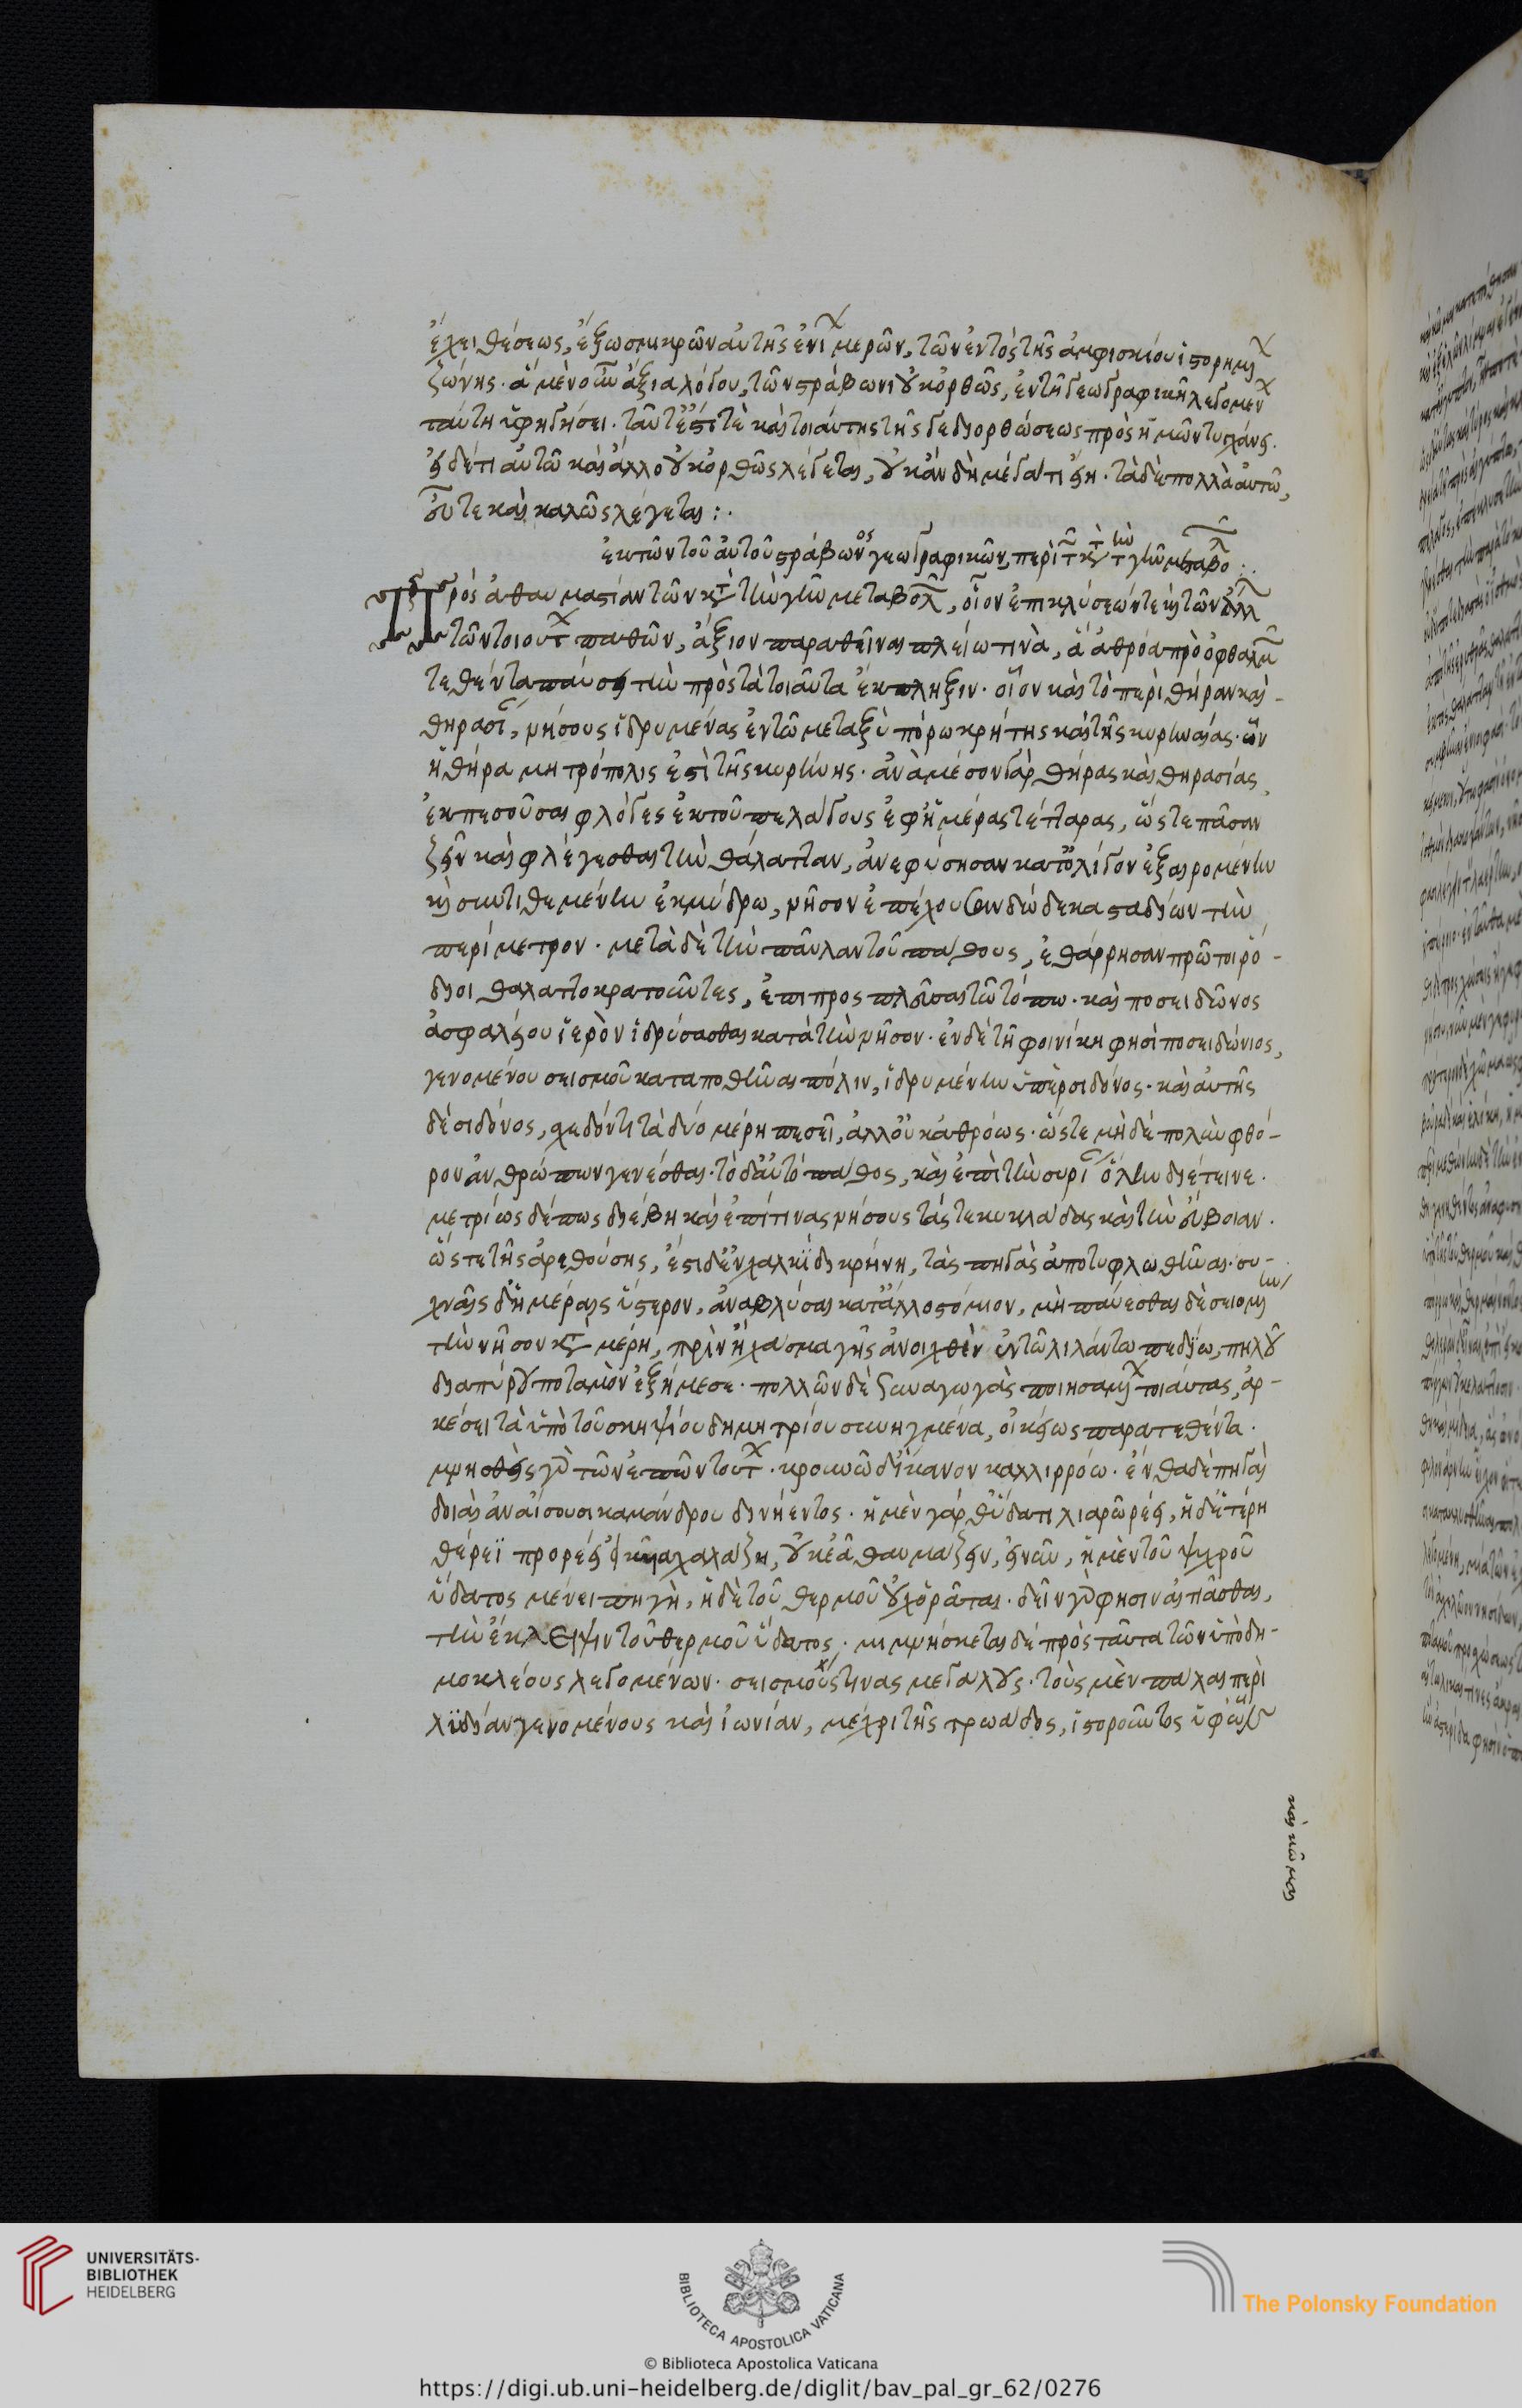 ἔχει θέσεως, ἔξω σμικρῶν αὐτῆς ἐνί μερῶν, τῶν ἐντὸς τῆς ἀμφισκίου ἱστορημ
ζώνης. ἃ μὲν οὖν ἀξιαλόγου, τῶν στράβωνι οὐκ ὀρθῶς, ἐν τῆ γεωγραφικῆ λεγομεν
ταύτη ὑφηγήσει. ταῦτ' ἐστί τὲ καὶ τοιαύτης τῆς διορθώσεως πρὸς ἡμῶν τυγχάνει.
εἰ δέ τι αὐτῶ καὶ ἄλλο οὐκ ὀρθῶς λέγεται, οὐκ ἂν δὴ μέγα τι εἴη. τὰ δὲ πολλὰ αὐτῶ,
εὖ τε καὶ καλῶς λέγεται :.
ἐκ τῶν τοῦ αὐτοῦ στράβωνος γεωγραφικῶν, περὶ τ κτ τ γῆν μεταβολ :.
Πρὸς ἀθαυμαστίαν τῶν κτ τὴν γῆν μεταβολ, οἷον ἐπικλύσεών τε καὶ τῶν ἄλλ
τῶν τοιουτ παθῶν, ἄξιον παραθεῖναι πλείω τινὰ, ἃ ἀθρόα πρὸ ὀφθαλμ
τεθέντα παύσει τὴν πρὸς τὰ τοιαῦτα ἔκπληξιν. οἷον καὶ τὸ περὶ θήραν καὶ -
θηρασί, νήσους ἱδρυμένας ἐν τῶ μεταξὺ πόρω κρήτης καὶ τῆς κυρηναίας. ὧν
ἡ θήρα μητρόπολις ἐστὶ τῆς κυρήνης. ἀνὰ μέσον γὰρ θήρας καὶ θηρασίας,
ἐκπεσοῦσαι φλόγες ἐκ τοῦ πελάγους ἐφ' ἡμέρας τέτταρας, ὥστε πᾶσαν
ζεῖν καὶ φλέγεσθαι τὴν θάλατταν, ἀνεφύσησαν κατ' ὀλίγον ἐξαιρομένην
καὶ συντιθεμένην ἐκ μύδρω, νῆσον ἐπέχουσαν δώδεκα σταδίων τὴν
περίμετρον. μετὰ δὲ τὴν παῦλαν τοῦ πάθους, ἐθάρρησαν πρῶτοι ῥό -
διοι θαλαττοκρατοῦντες, ἐπιπροσπλεῦσαι τῶ τόπω. καὶ ποσειδῶνος
ἀσφαλείου ἱερὸν ἱδρύσασθαι κατὰ τὴν νῆσον. ἐν δὲ τῆ φοινίκη φησὶ ποσειδώνιος,
γενομένου σεισμοῦ καταποθῆναι πόλιν, ἱδρυμένην ὑπὲρ σιδόνος. καὶ αὐτῆς
δὲ σιδόνος, σχεδόν τι τὰ δύο μέρη πεσεῖ, ἀλλ' οὐκ ἀθρόως. ὥστε μὴ δὲ πολὺν φθό -
ρον ἀνθρώπων γενέσθαι. τὸ δ' αὐτὸ πάθος, καὶ ἐπὶ τὴν συρί ὅλην διέτεινε.
μετρίως δέ πως διέβη καὶ ἐπί τινας νήσους τάς τε κυκλάδας καὶ τὴν εὔβοιαν.
ὥστε τῆς ἀρεθούσης, ἔστι δ' ἐν χαλκίδι κρήνη, τὰς πηγὰς ἀποτυφλωθῆναι. συ -
χναῖς δ' ἡμέραις ὕστερον, ἀναβλύσαι κατ' ἄλλο στόμιον, μὴ παύεσθαι δὲ σειομένην
τὴν νῆσον κτ μέρη, πρὶν ἢ χάσμα γῆς ἀνοιχθὲν ἐν τῶ λιλάντω πεδίω, πηλοῦ
διαπύρου ποταμὸν ἐξήμεσε. πολλῶν δὲ συναγωγὰς ποιησαμ τοιαύτας, ἀρ -
κέσει τὰ ὑπὸ τοῦ σκηψίου δημητρίου συνηγμένα, οἰκείως παρατεθέντα.
μνησθεὶς γὰρ τῶν ἐπῶν τουτ. κρουνὼ δ' ἵκανον καλλιρρόω. ἔνθα δὲ πηγαὶ
δοιαὶ ἀναΐσουσι καμάνδρου δινήεντος. ἡ μὲν γάρ θ' ὕδατι λιαρῶ ῥέει, ἡ δ' ἑτέρη
θέρεϊ προρέει εἰκυῖα χαλάζη, οὐκ ἐᾶ θαυμάζειν, εἰ νῦν, ἡ μὲν τοῦ ψυχροῦ
ὕδατος μένει πηγὴ, ἡ δὲ τοῦ θερμοῦ οὐχ ὁρᾶται. δεῖν γάρ φησιν αἰτιᾶσθαι,
τὴν ἔκλειψιν τοῦ θερμοῦ ὕδατος. μιμνήσκεται δὲ πρὸς ταῦτα τῶν ὑπὸ δη -
μοκλέους λεγομένων. σεισμούς τινας μεγάλους. τοὺς μὲν πάλαι περὶ
λϋδίαν γενομένους καὶ ἰωνίαν, μέχρι τῆς τρωάδος, ἱστοροῦντος ὑφ' ὧν
καὶ κῶμαι
UNIVERSITÄTS-
BIBLIOTHEK
HEIDELBERG
BIBLIOTECA APOSTOLICA VATICANA
© Biblioteca Apostolica Vaticana
The Polonsky Foundation
https://digi.ub.uni-heidelberg.de/diglit/bav_pal_gr_62/0276